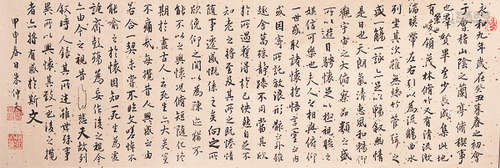 永和九年歲在癸丑暮春之初會
于會稽山陰之蘭亭脩禊事
也羣賢畢至少長咸集此地
有崇領茂林脩竹又有清流激
湍暎帶左右引以為流觴曲水
列坐其次雖無絲竹管弦之
盛一觴一詠亦足以暢敘幽情
觀宇宙之大俯察品類之盛
可以遊目騁懷足以極視聽之
娛信可樂也夫人之相與俯仰
一世或取諸懷抱悟言一室之內
或因寄所託放浪形骸之外雖
趣舍萬殊靜躁不同當其欣
於所遇暫得於己快然自足不知
老之將至及其所之既倦情
隨事遷感慨係之矣向之所
欣俛仰之間以為陳迹猶不
能不以之興懷況脩短隨化終
期於盡古人云死生亦大矣豈
不痛哉每攬昔人興感之由
若合一契未嘗不臨文嗟悼不
能喻之於懷固知一死生為虛
誕齊彭殤為妄作後之視今
亦由今之視昔悲夫故列
敘時人錄其所述雖世殊事
異所以興懷其致一也後之攬
者亦將有感於斯文
甲申春日